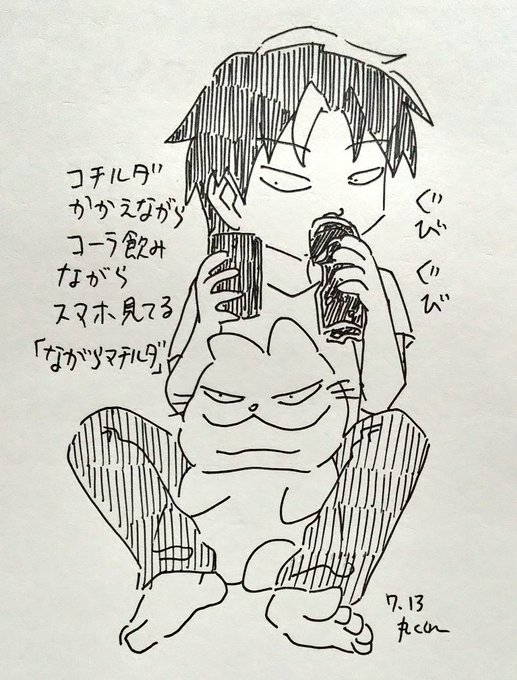 コチルダ
かかえながら
コーラ飲み
ながら
スマホ見てる
「ながらマチルダ」
ぐびぐび
7.13